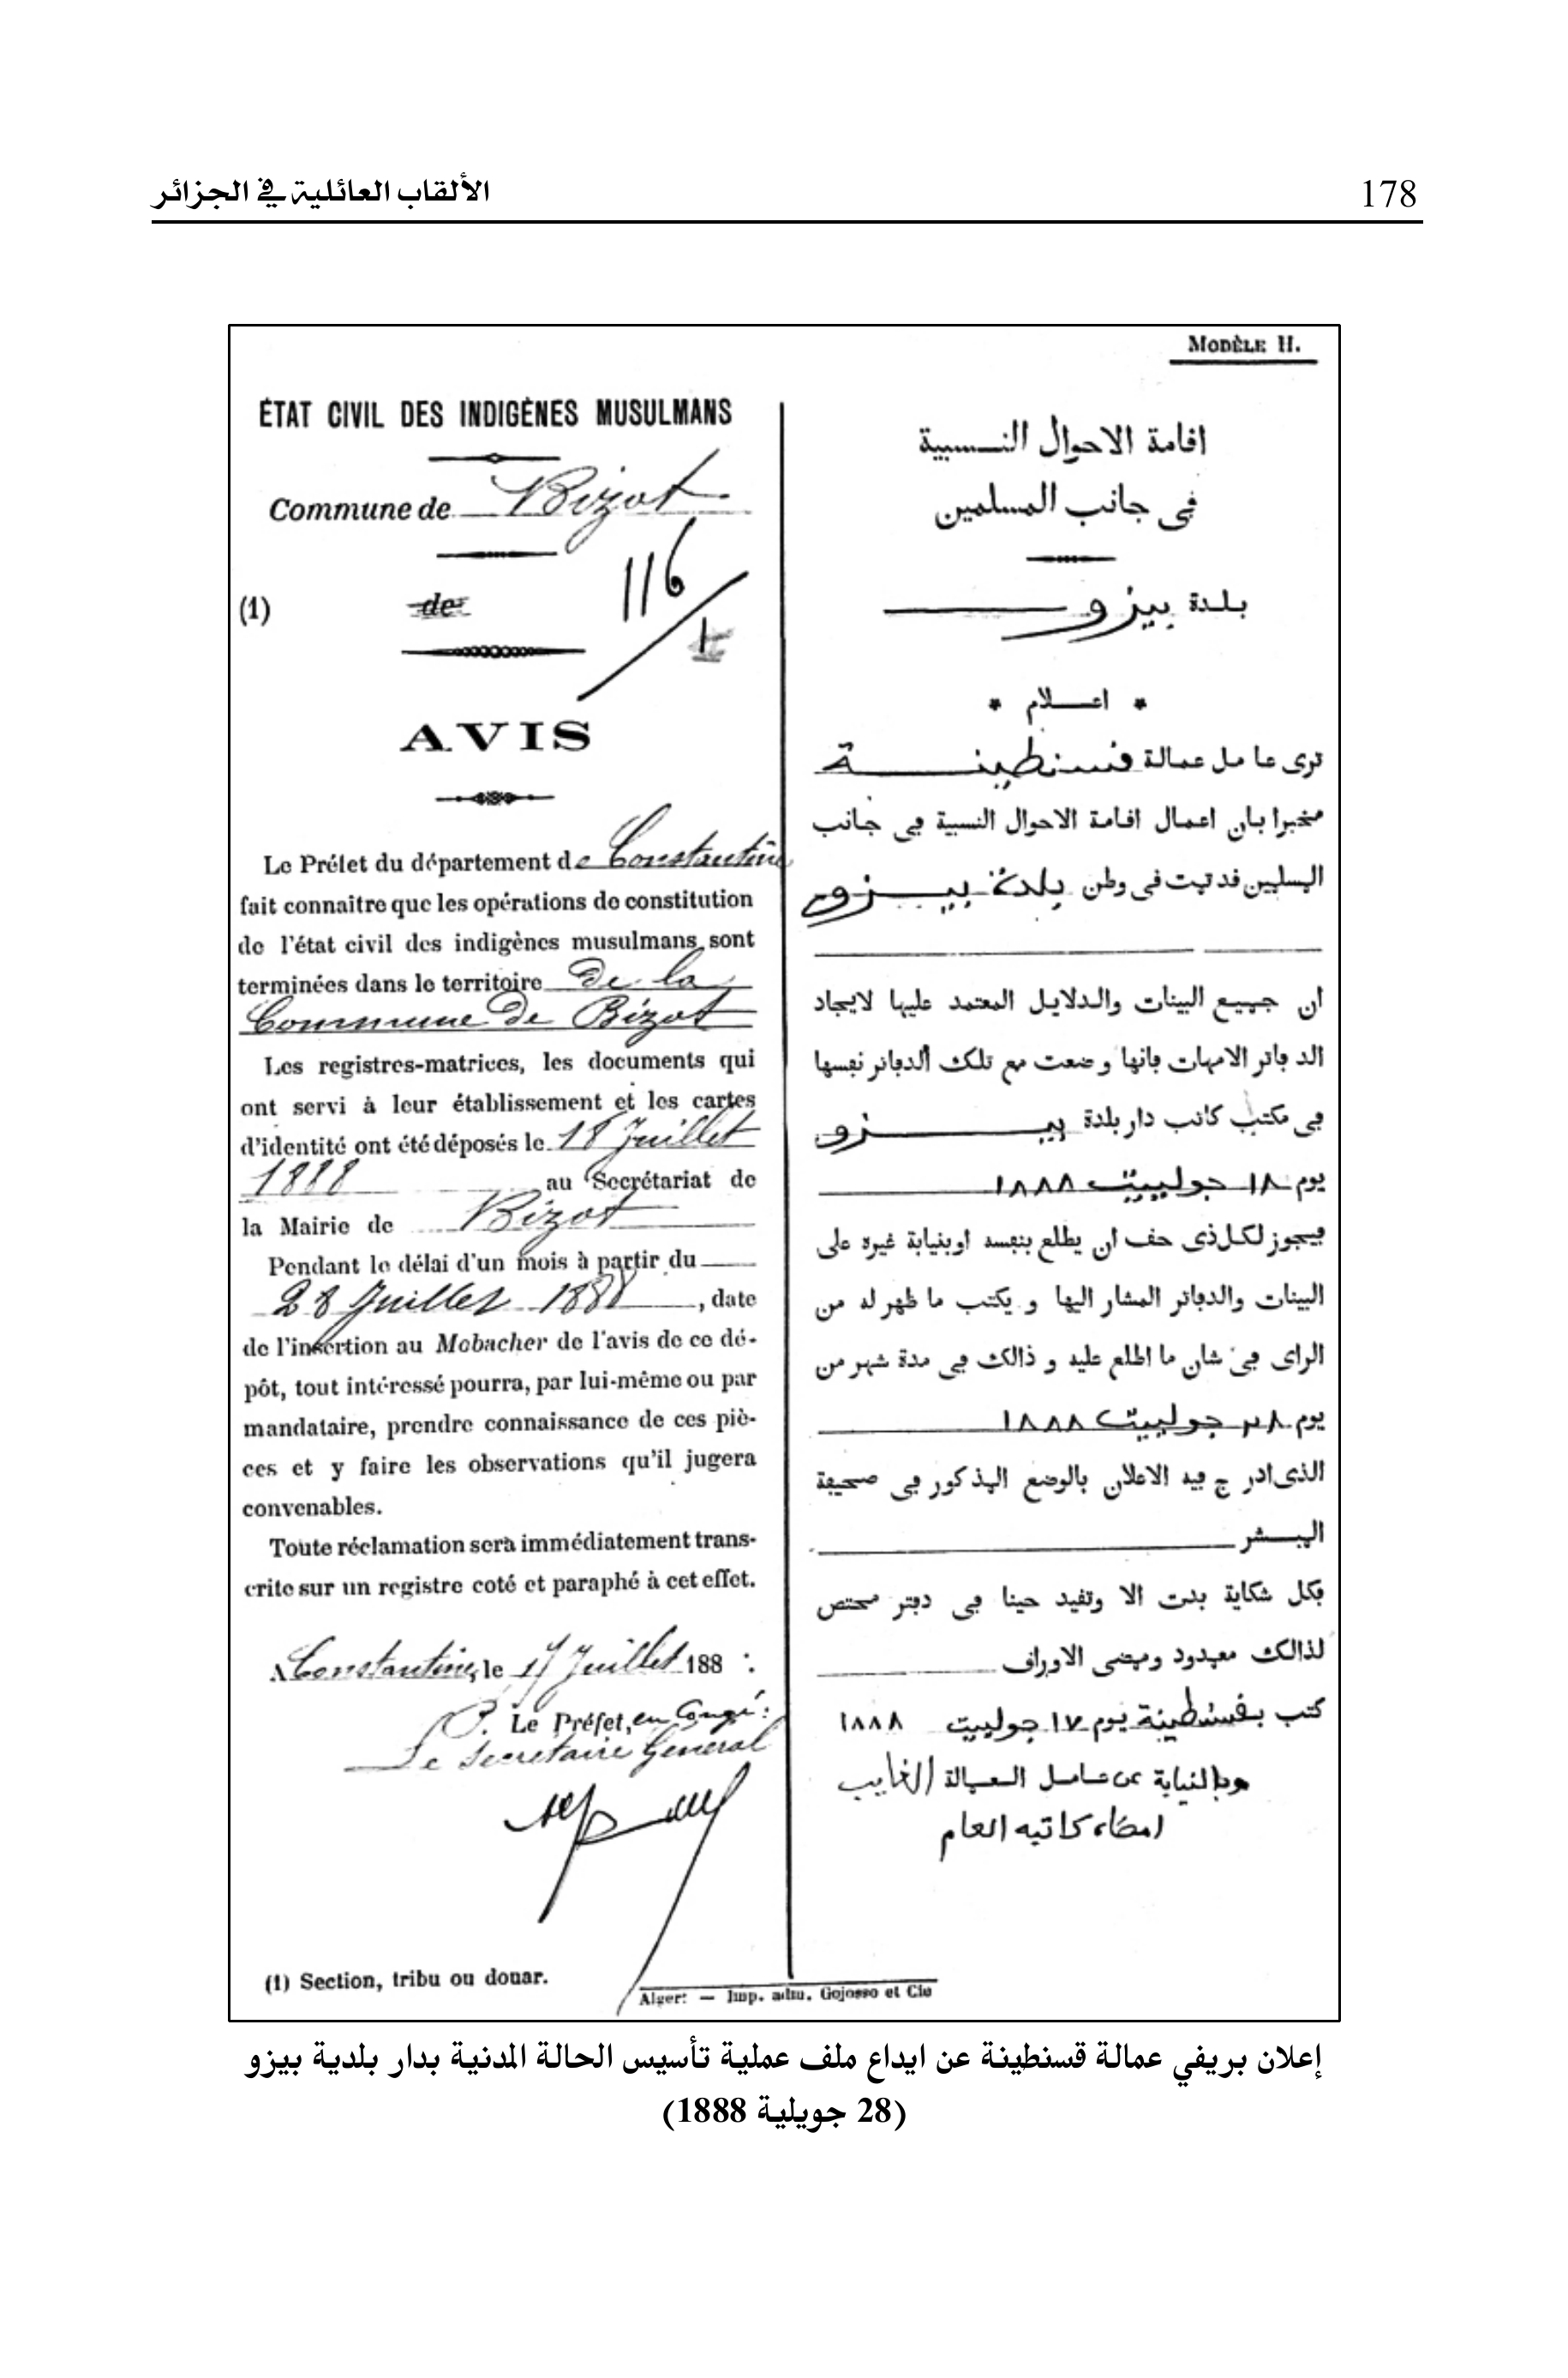 178
الألقاب العائلية في الجزائر
MODÈLE H.
ÉTAT CIVIL DES INDIGÈNES MUSULMANS
Commune de Bizot
116
(1) de
1
AVIS
Le Préfet du département de Constantine
fait connaitre que les opérations de constitution
de l'état civil des indigènes musulmans sont
terminées dans le territoire de la
Commune de Bizot
Les registres-matrices, les documents qui
ont servi à leur établissement et les cartes
d'identité ont été déposés le 18 Juillet
1888 au Secrétariat de
la Mairie de Bizot
Pendant le délai d'un mois à partir du
28 Juillet 1888, date
de l'insertion au Mobacher de l'avis de ce dé-
pôt, tout intéressé pourra, par lui-même ou par
mandataire, prendre connaissance de ces piè-
ces et y faire les observations qu'il jugera
convenables.
Toute réclamation sera immédiatement trans-
crite sur un registre coté et paraphé à cet effet.
A Constantine, le 17 Juillet 188
P. Le Préfet, en Congé:
Le Secrétaire Général
(1) Section, tribu ou douar.
افامة الاحوال النسبية
في جانب المسلمين
بلدة بيزو
* اعلام *
ترى عامل عمالة فسنطينة
مخبرا بان اعمال افامة الاحوال النسبية في جانب
المسلمين فد تمت في وطن بلدة بيزو
ان جميع البينات والدلايل المعتمد عليها لايجاد
الدفاتر الامهات فانها وضعت مع تلك الدفاتر نفسها
في مكتب كاتب دار بلدة بيزو
يوم ١٨ جولييت ١٨٨٨
فيجوز لكل ذى حف ان يطلع بنفسه او بنيابة غيره على
البينات والدفاتر المشار اليها و يكتب ما ظهر له من
الراى في شان ما اطلع عليه و ذالك في مدة شهر من
يوم ٢٨ جولييت ١٨٨٨
الذى ادرج فيه الاعلان بالوضع المذكور في صحيفة
المبشر
فكل شكاية بدت الا وتفيد حينا في دفتر مختص
لذالك معدود وممضى الاوراف
كتب بفسنطينة يوم ١٧ جولييت ١٨٨٨
وبالنيابة عن عامل العمالة الغايب
امضاء كاتبه العام
Alger: — Imp. adm. Gojosso et Cie
إعلان بريفي عمالة قسنطينة عن ايداع ملف عملية تأسيس الحالة المدنية بدار بلدية بيزو
(28 جويلية 1888)